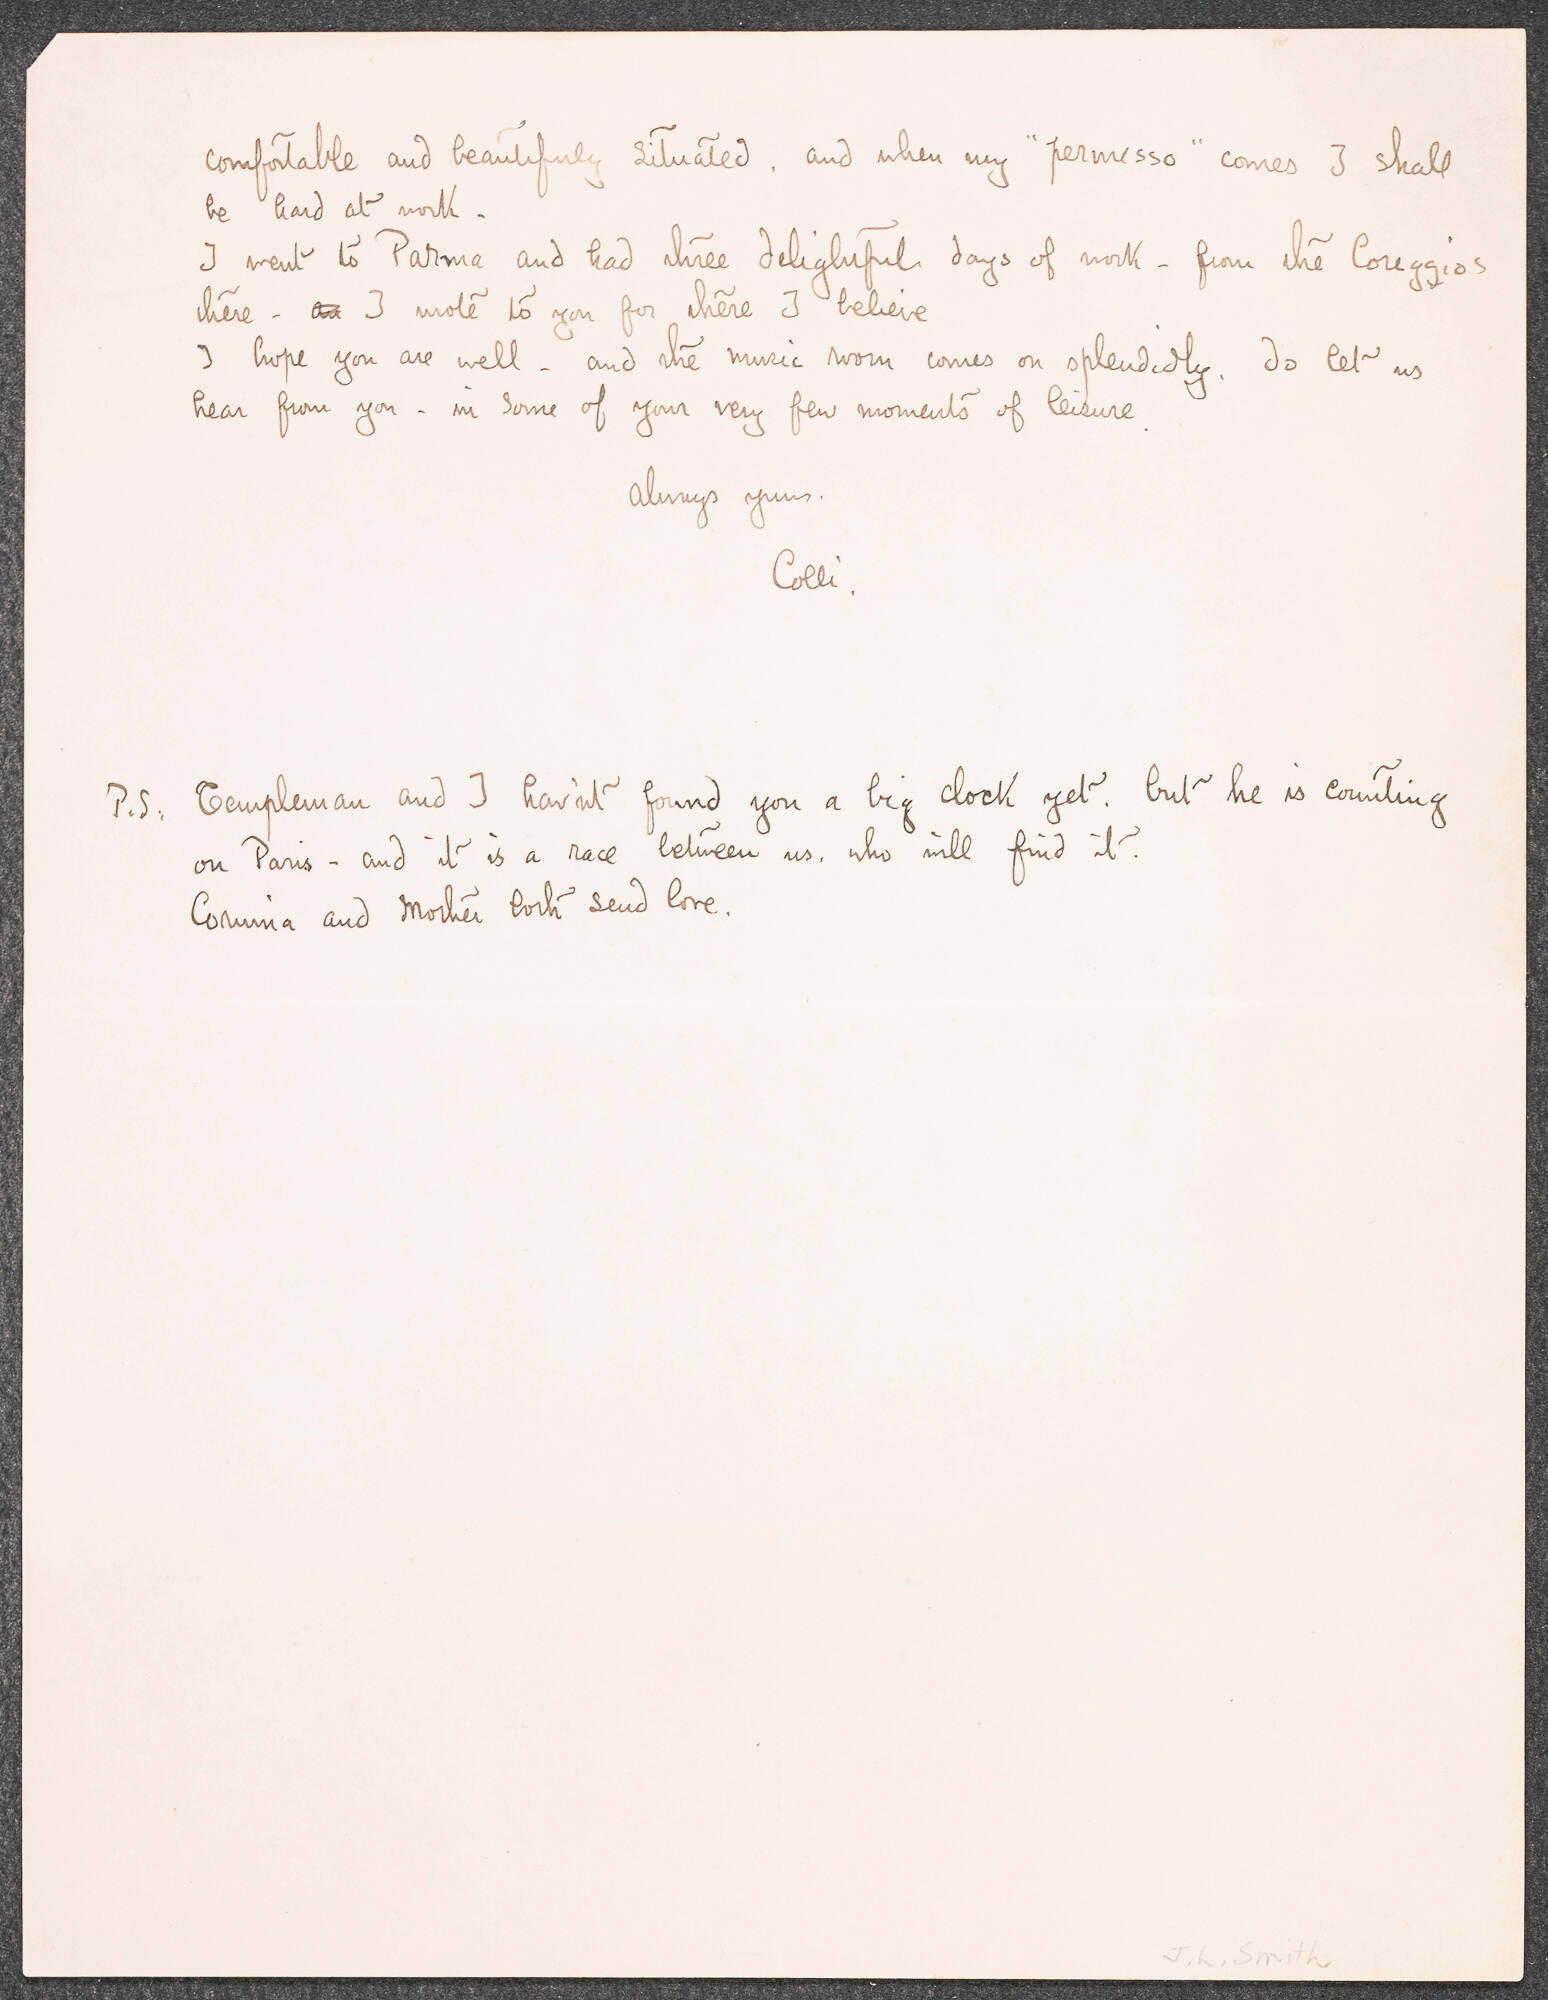 comfortable and beautifully situated, and when my "permesso" comes I shall
be hard at work -
I went to Parma and had three delightful days of work - from the Coreggios
there - I wrote to you for there I believe
I hope you are well - and the music room comes on splendidly. do let us
hear from you - in some of your very few moments of leisure.
always yours.
Colli.
P.S. Templeman and I hav'nt found you a big clock yet. but he is counting
on Paris - and it is a race between us. who will find it.
Corinna and Mother both send love.
J. L. Smith